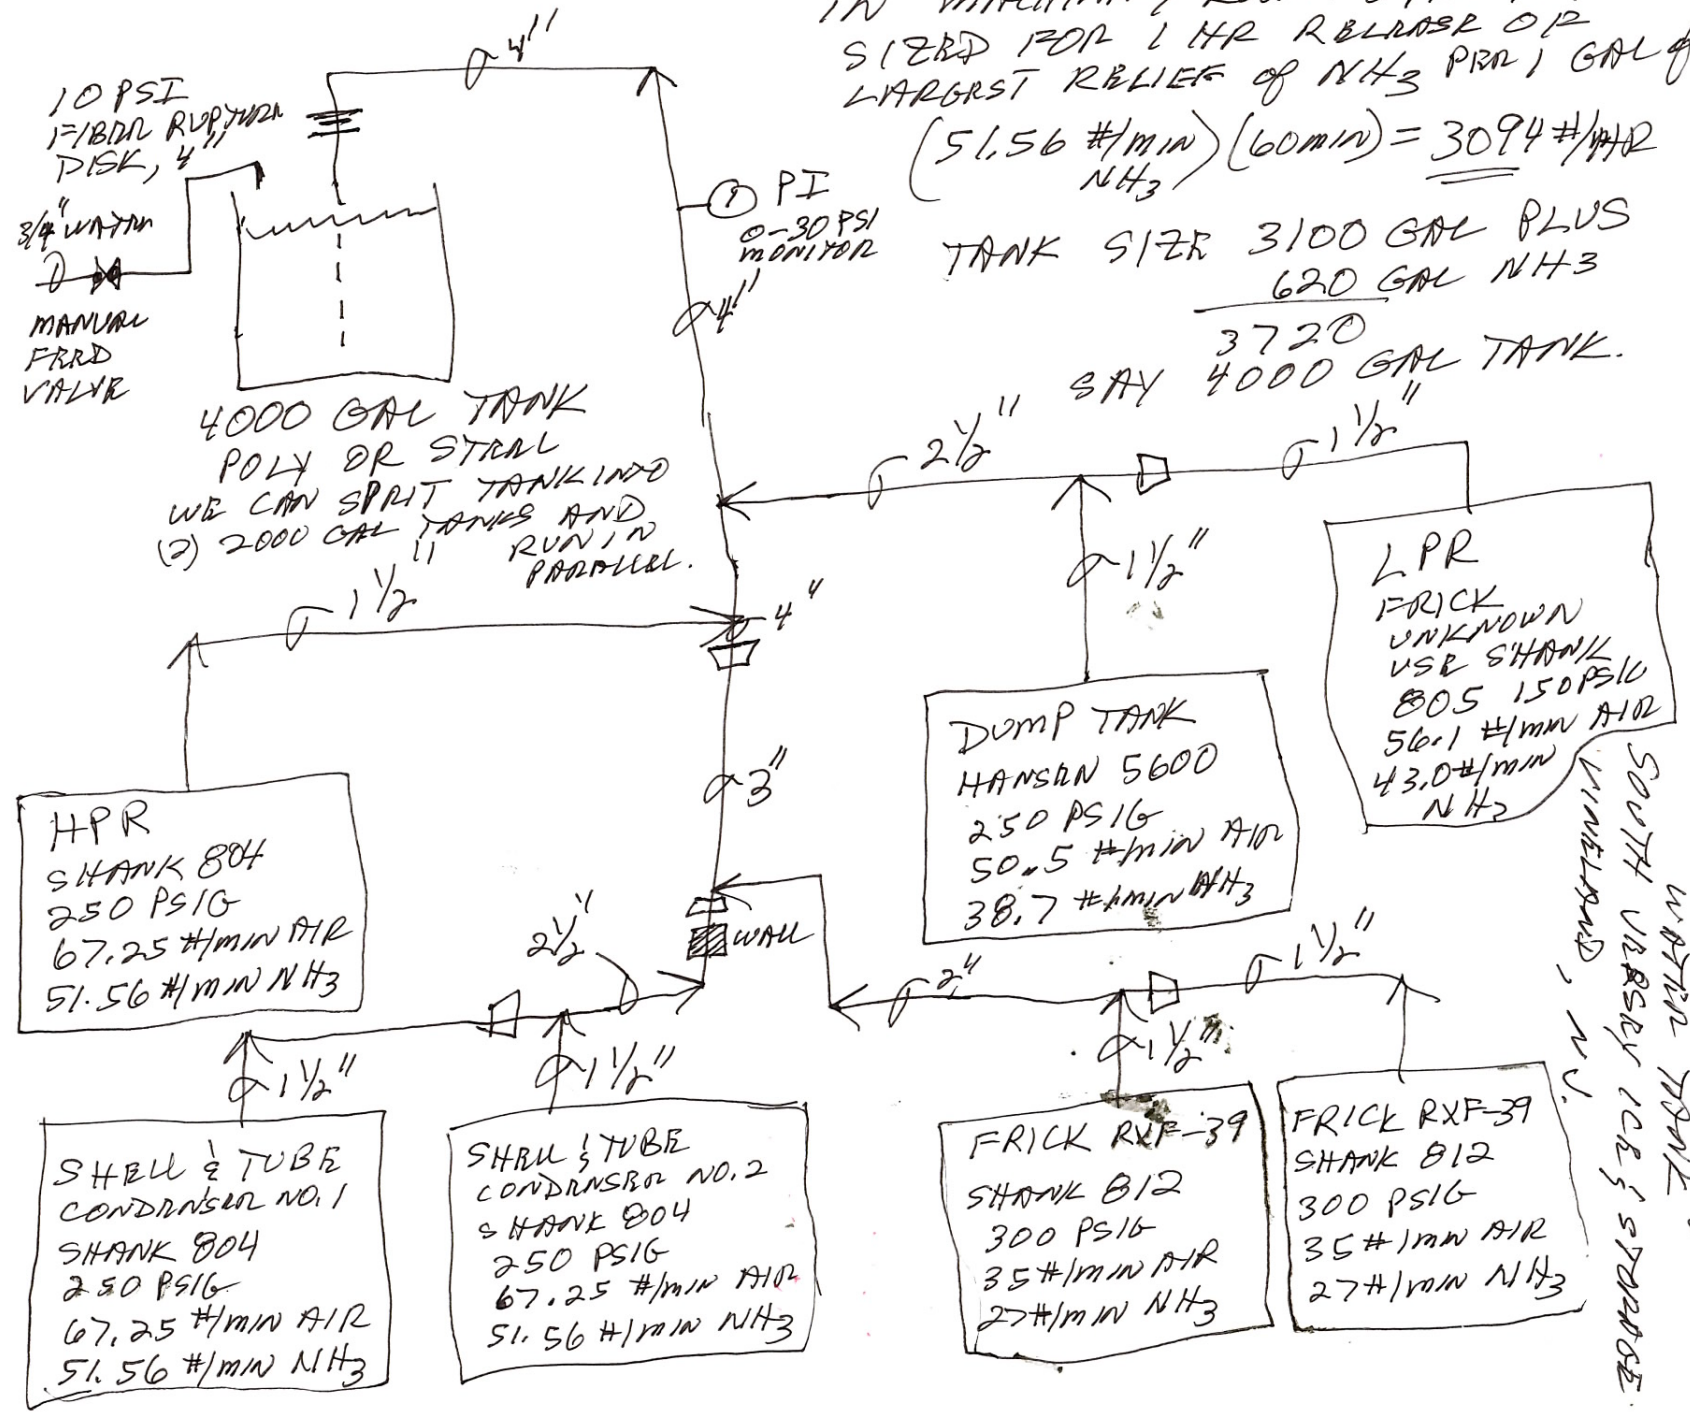 SIZED FOR 1 HR RELEASE OF
LARGEST RELIEF of NH3 PER 1 GAL of
(51.56 #/min NH3)(60min) = 3094 #/HR
TANK SIZE 3100 GAL PLUS
620 GAL NH3
3720
SAY 4000 GAL TANK.
4"
10 PSI
FIBER RUPTURE
DISK, 4"
3/4" WATER
MANUAL
FEED
VALVE
PI
0-30 PSI
MONITOR
4"
4000 GAL TANK
POLY OR STEEL
WE CAN SPRIT TANK INTO
(2) 2000 GAL TANKS AND
RUN IN
PARALLEL.
2 1/2"
1 1/2"
1 1/2"
4"
1 1/2"
LPR
FRICK
UNKNOWN
USE SHANK
805 150 PSIG
56.1 #/min AIR
43.0 #/min
NH3
DUMP TANK
HANSEN 5600
250 PSIG
50.5 #/min AIR
38.7 #/min NH3
3"
HPR
SHANK 804
250 PSIG
67.25 #/min AIR
51.56 #/min NH3
WALL
2 1/2"
2"
1 1/2"
1 1/2"
1 1/2"
1 1/2"
SHELL & TUBE
CONDENSER NO. 1
SHANK 804
250 PSIG
67.25 #/min AIR
51.56 #/min NH3
SHELL & TUBE
CONDENSER NO. 2
SHANK 804
250 PSIG
67.25 #/min AIR
51.56 #/min NH3
FRICK RXF-39
SHANK 812
300 PSIG
35 #/min AIR
27 #/min NH3
FRICK RXF-39
SHANK 812
300 PSIG
35 #/min AIR
27 #/min NH3
WATER TANK
SOUTH JERSEY ICE & STORAGE
VINELAND, NJ.